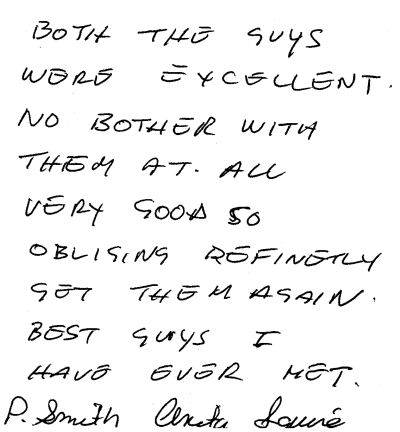 BOTH THE GUYS
WERE EXCELLENT.
NO BOTHER WITH
THEM AT. ALL
VERY GOOD SO
OBLIGING DEFINETLY
GET THEM AGAIN.
BEST GUYS I
HAVE EVER MET.
P. Smith Anita